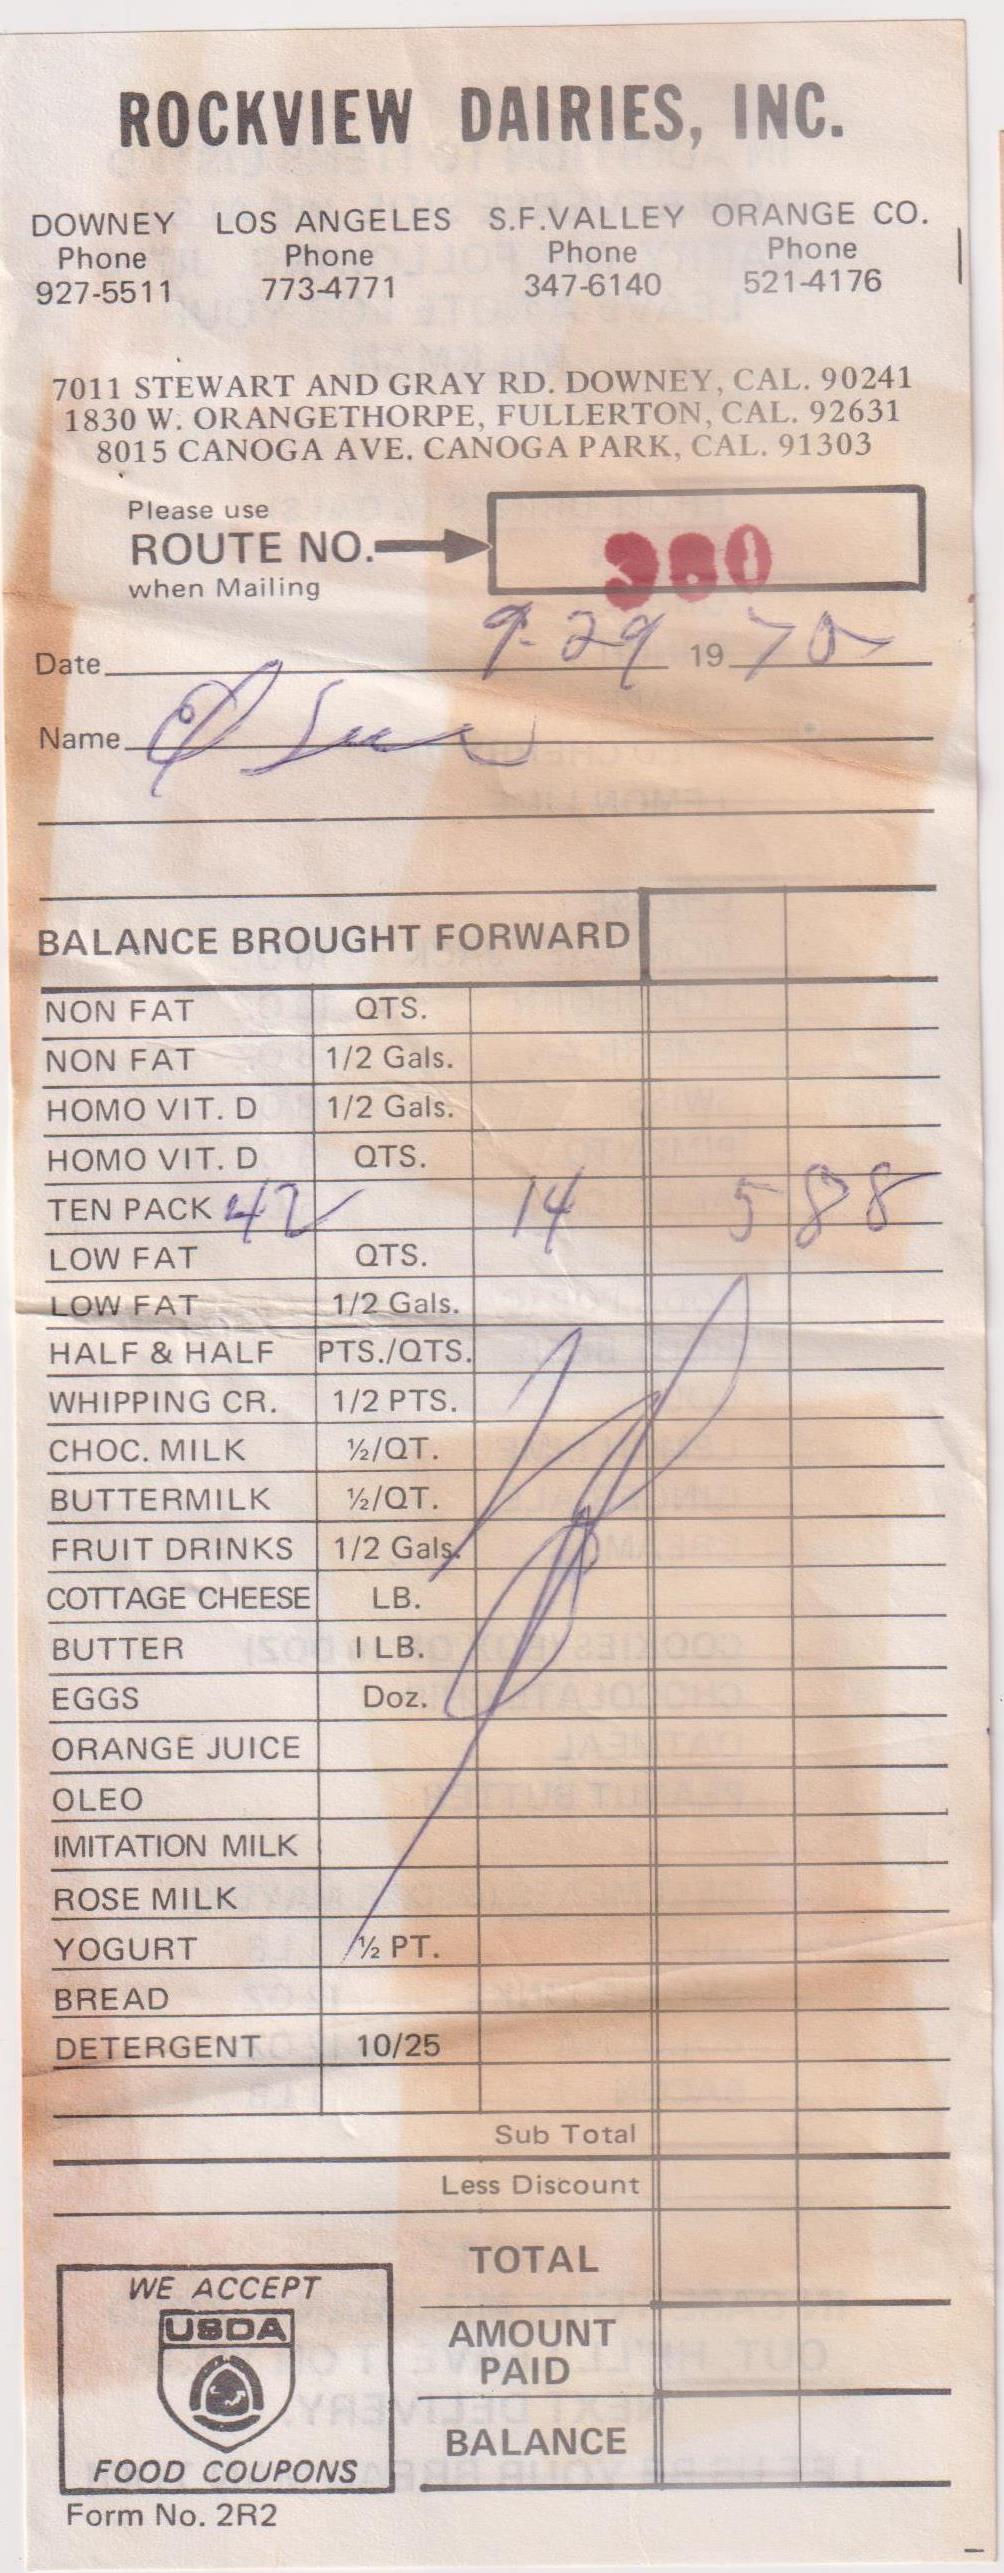 ROCKVIEW DAIRIES, INC.
DOWNEY LOS ANGELES S.F.VALLEY ORANGE CO.
Phone Phone Phone Phone
927-5511 773-4771 347-6140 521-4176
7011 STEWART AND GRAY RD. DOWNEY, CAL. 90241
1830 W. ORANGETHORPE, FULLERTON, CAL. 92631
8015 CANOGA AVE. CANOGA PARK, CAL. 91303
Please use
ROUTE NO.
when Mailing
380
Date 9-29 1970
Name
BALANCE BROUGHT FORWARD
NON FAT QTS.
NON FAT 1/2 Gals.
HOMO VIT. D 1/2 Gals.
HOMO VIT. D QTS.
TEN PACK 42 14 5 88
LOW FAT QTS.
LOW FAT 1/2 Gals.
HALF & HALF PTS./QTS.
WHIPPING CR. 1/2 PTS.
CHOC. MILK ½/QT.
BUTTERMILK ½/QT.
FRUIT DRINKS 1/2 Gals.
COTTAGE CHEESE LB.
BUTTER 1 LB.
EGGS Doz.
ORANGE JUICE
OLEO
IMITATION MILK
ROSE MILK
YOGURT ½ PT.
BREAD
DETERGENT 10/25
Sub Total
Less Discount
TOTAL
AMOUNT
PAID
BALANCE
WE ACCEPT
USDA
FOOD COUPONS
Form No. 2R2